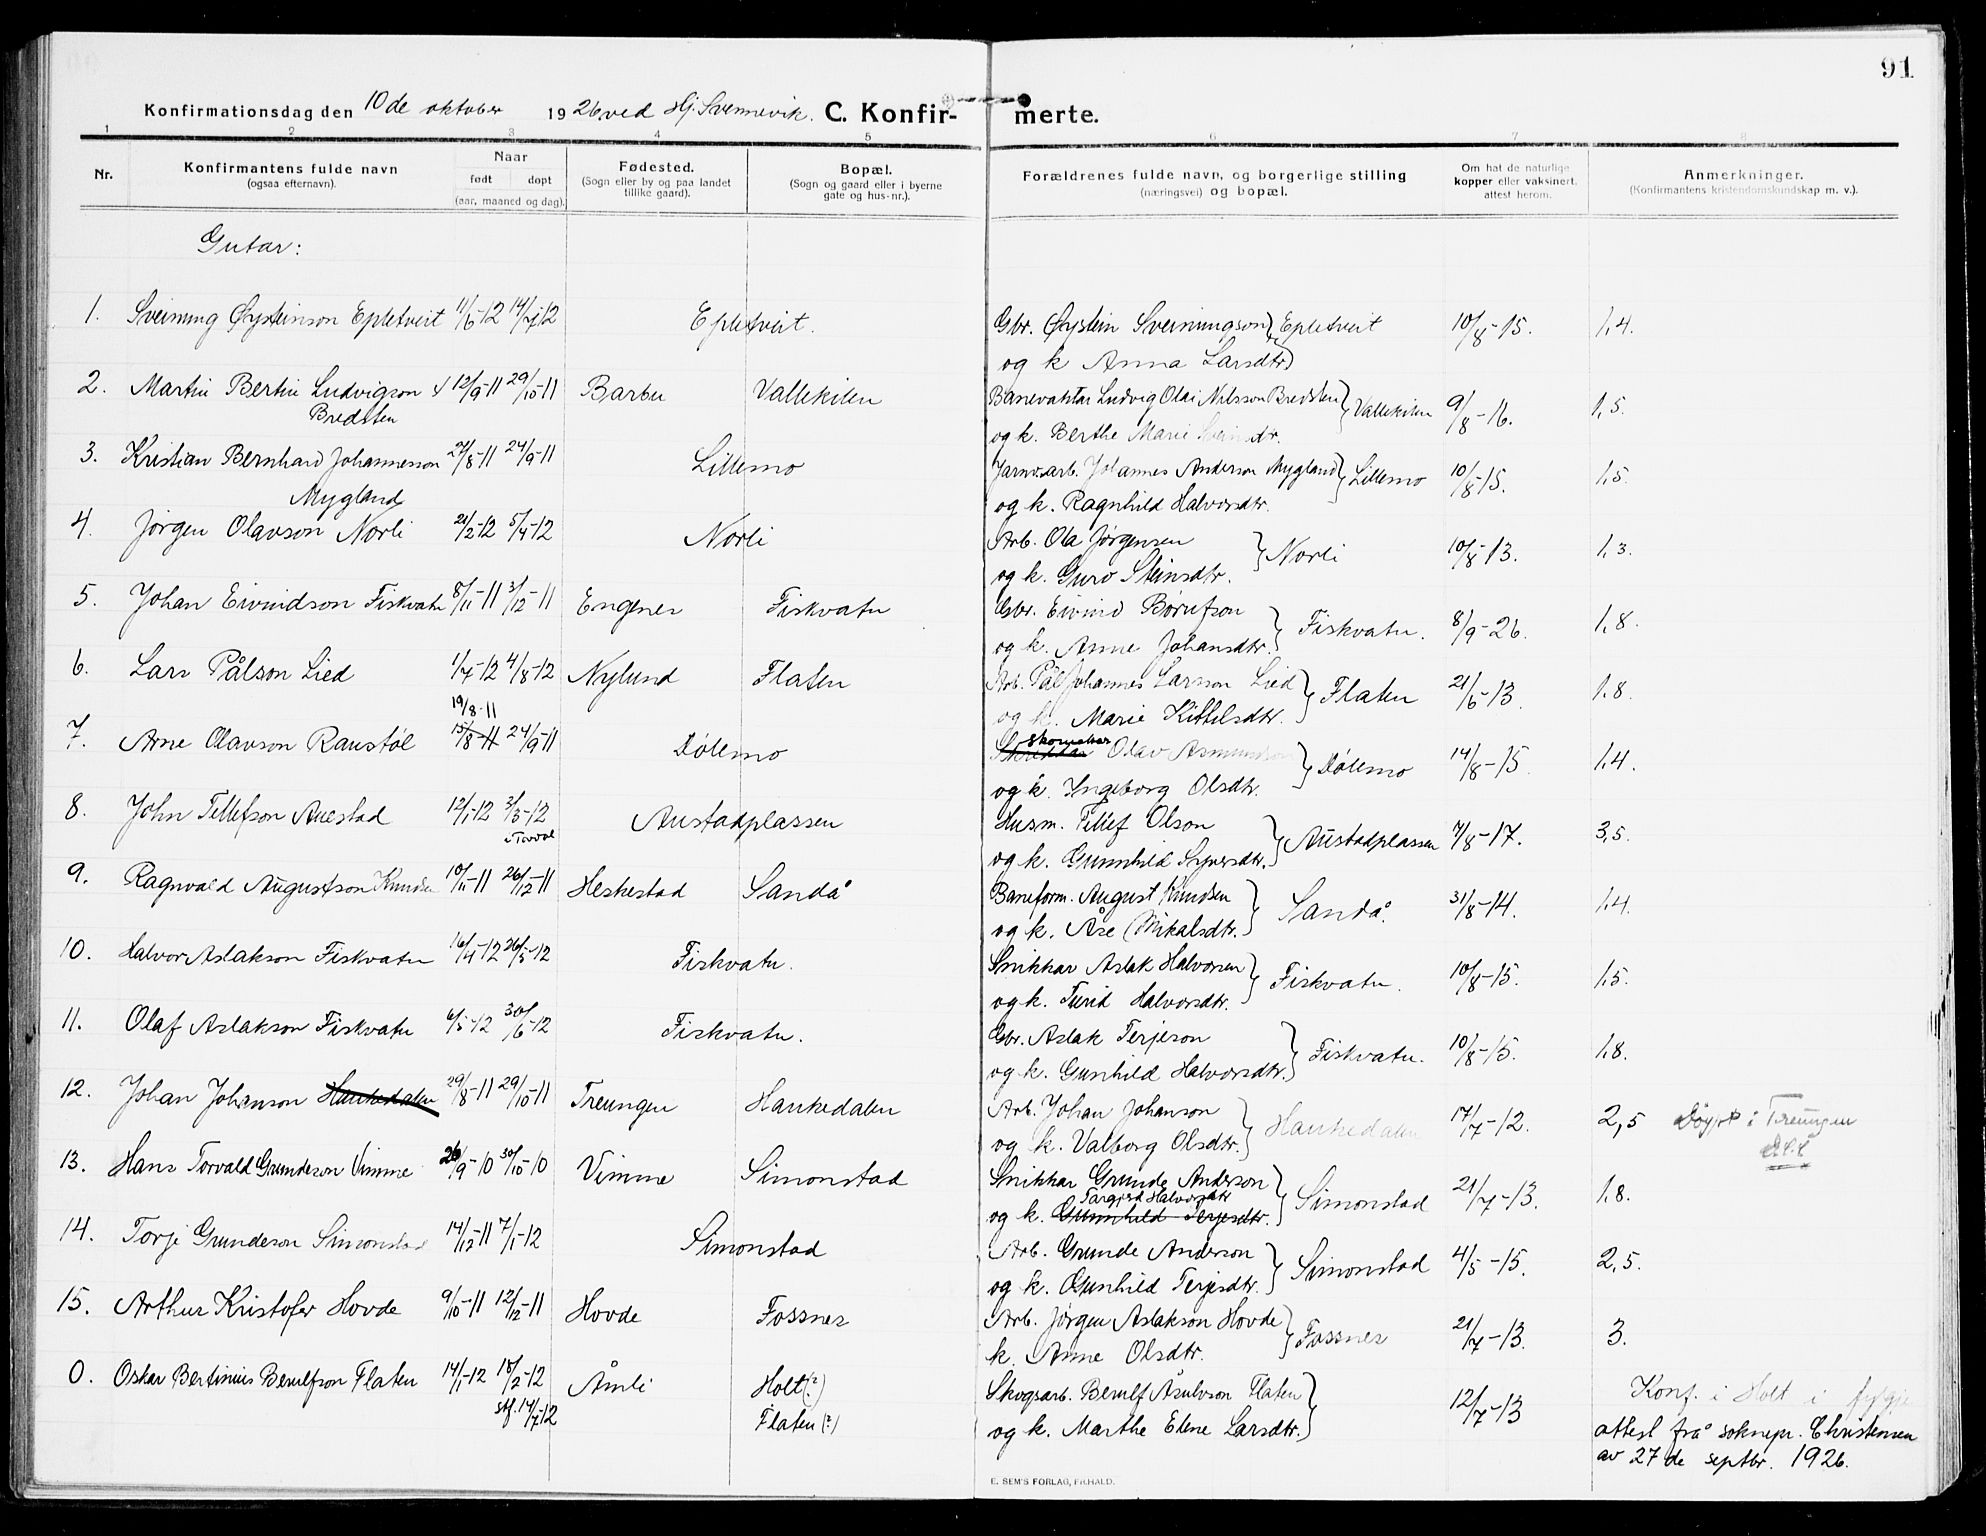 91
Konfirmationsdag den 10de oktober 1926 ved Hj. Svennevik. C. Konfirmerte.
1 2 3 4 5 6 7 8
Nr. Konfirmantens fulde navn (ogsaa efternavn). Naar født døpt (aar, maaned og dag). Fødested. (Sogn eller by og paa landet tillike gaard). Bopæl. (Sogn og gaard eller i byerne gate og hus-nr.). Forældrenes fulde navn, og borgerlige stilling (næringsvei) og bopæl. Om hat de naturlige kopper eller vaksinert, attest herom. Anmerkninger. (Konfirmantens kristendomskundskap m. v.).
Gutar:
1. Sveinung Øysteinson Epletveit 11/6-12 14/7-12 Epletveit. Gbr. Øystein Sveinungson } Epletveit 10/8-15. 1,4.
og k Anna Larsdtr
2. Martin Bertin Ludvigson 12/9-11 29/10-11 Barbu Vallekilen Banevaktar Ludvig Olai Nilsson Bredsten } Vallekilen 9/8-16. 1,5.
Bredsten og k. Berthe Marie Sveinsdtr.
3. Kristian Bernhard Johannesson 27/8-11 24/9-11 Lillemo Jarnv.arb. Johannes Anderson Mygland } Lillemo 10/8-15. 1,5.
Mygland og k. Ragnhild Halvorsdtr.
4. Jørgen Olavson Norli 21/2-12 5/4-12 Norli Arb. Ola Jørgensen } Norli 10/8-13. 1,3.
og k. Guro Steinsdtr.
5. Johan Eivindson Fiskvatn 8/11-11 3/12-11 Engenes Fiskvatn Gbr. Eivind Børufson } Fiskvatn. 8/9-26. 1,8.
og k. Anne Johansdtr.
6. Lars Pålson Lied 1/7-12 4/8-12 Nylund Flaten Arb. Pål Johannes Larson Lied } Flaten 21/6-13. 1.8.
og k. Marie Kittilsdtr.
19/8-11
7. Arne Olavson Raustøl 15/8-11 24/9-11 Dølemo Skomakar Olav Asmundson } Dølemo 14/8-15. 1,4.
og k. Ingeborg Olsdtr.
8. John Tellefson Austad 12/1-12 3/3-12 Austadplassen Husm. Tellef Olson } Austadplassen 7/8-17. 3,5.
og k. Gunnhild Syversdtr.
9. Ragnvald Augustson Knudsen 10/11-11 26/12-11 Heskestad Sandå Baneform. August Knudsen } Sandå. 31/8-14. 1,4.
og k. Åse Mikalsdtr.
10. Halvor Aslakson Fiskvatn 16/4-12 26/5-12 Fiskvatn. Snikkar Aslak Halvorsen } Fiskvatn. 10/8-15. 1,5.
og k. Turid Halvorsdtr.
11. Olaf Aslakson Fiskvatn 6/5-12 30/6-12 Fiskvatn. Gbr. Aslak Terjeson } Fiskvatn. 10/8-15. 1,8.
og k. Gunhild Halvorsdtr.
12. Johan Johanson Haukedalen 29/8-11 29/10-11 Treungen Haukedalen Arb. Johan Johanson } Haukedalen 17/7-12. 2,5 Døypt i Treungen
og k. Valborg Olsdtr.
13. Hans Torvald Grundeson Vimme 26/9-10 30/10-10 Vimme Simonstad Snikkar Grunde Anderson } Simonstad 21/7-13. 1,8.
Targjerd Halvorsdtr
og k. Gunnhild Terjesdtr.
14. Torje Grundeson Simonstad 14/12-11 7/1-12 Simonstad Arb. Grunde Anderson } Simonstad 4/5-15. 2,5.
og k. Gunhild Terjesdtr.
15. Arthur Kristofer Hovde 9/10-11 12/12-11 Hovde Fossnes Arb. Jørgen Aslakson Hovde } Fossnes 21/7-13. 3.
k. Anne Olsdtr.
0. Oskar Bertinius Berulfson Flaten 14/1-12 18/2-12 Åmli Holt (?) Skogsarb. Berulf Åsulvson Flaten } 12/7-13 Konf. i Holt i fylgje
stf. 14/7-12 Flaten (?) og k. Marthe Elene Larsdtr. attest frå soknepr. Christensen
av 27de septbr. 1926.
E. SEM'S FORLAG, FR.HALD.